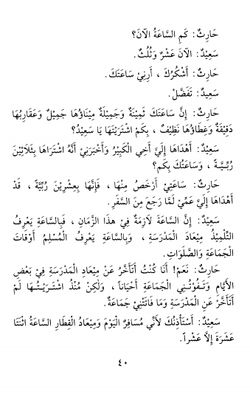 حَارِثٌ: كَمِ السَّاعَةُ الْآنَ؟
سَعِيْدٌ: الْآنَ عَشْرٌ وَثُلُثٌ.
حَارِثٌ: أَشْكُرُكَ ، أَرِنِيْ سَاعَتَكَ.
سَعِيْدٌ: تَفَضَّلْ.
حَارِثٌ: إِنَّ سَاعَتَكَ ثَمِيْنَةٌ وَجَمِيْلَةٌ مِيْنَاؤُهَا جَمِيْلٌ وَعَقَارِبُهَا
دَقِيْقَةٌ وَغِطَاؤُهَا نَظِيْفٌ ، بِكَمْ اشْتَرَيْتَهَا يَا سَعِيْدُ؟
سَعِيْدٌ: أَهْدَاهَا إِلَيَّ أَخِي الْكَبِيْرُ وَأَخْبَرَنِيْ أَنَّهُ اشْتَرَاهَا بِثَلَاثِيْنَ
رُبِّيَّةً ، وَسَاعَتُكَ بِكَمْ؟
حَارِثٌ: سَاعَتِيْ أَرْخَصُ مِنْهَا ، فَإِنَّهَا بِعِشْرِيْنَ رُبِّيَّةً ، قَدْ
أَهْدَاهَا إِلَيَّ عَمِّيْ لَمَّا رَجَعَ مِنَ السَّفَرِ.
سَعِيْدٌ: إِنَّ السَّاعَةَ لَازِمَةٌ فِيْ هٰذَا الزَّمَانِ ، فَبِالسَّاعَةِ يَعْرِفُ
التِّلْمِيْذُ مِيْعَادَ الْمَدْرَسَةِ ، وَبِالسَّاعَةِ يَعْرِفُ الْمُسْلِمُ أَوْقَاتَ
الْجَمَاعَةِ وَالصَّلَوَاتِ.
حَارِثٌ: نَعَمْ! أَنَا كُنْتُ أَتَأَخَّرُ عَنْ مِيْعَادِ الْمَدْرَسَةِ فِيْ بَعْضِ
الْأَيَّامِ وَتَفُوْتُنِي الْجَمَاعَةُ أَحْيَانًا ، وَلٰكِنْ مُنْذُ اشْتَرَيْتُهَا لَمْ
أَتَأَخَّرْ عَنِ الْمَدْرَسَةِ وَمَا فَاتَتْنِيْ جَمَاعَةٌ.
سَعِيْدٌ: أَسْتَأْذِنُكَ لِأَنِّي مُسَافِرٌ الْيَوْمَ وَمِيْعَادُ الْقِطَارِ السَّاعَةُ اثْنَتَا
عَشَرَةَ إِلَّا عَشْراً.
٤٠